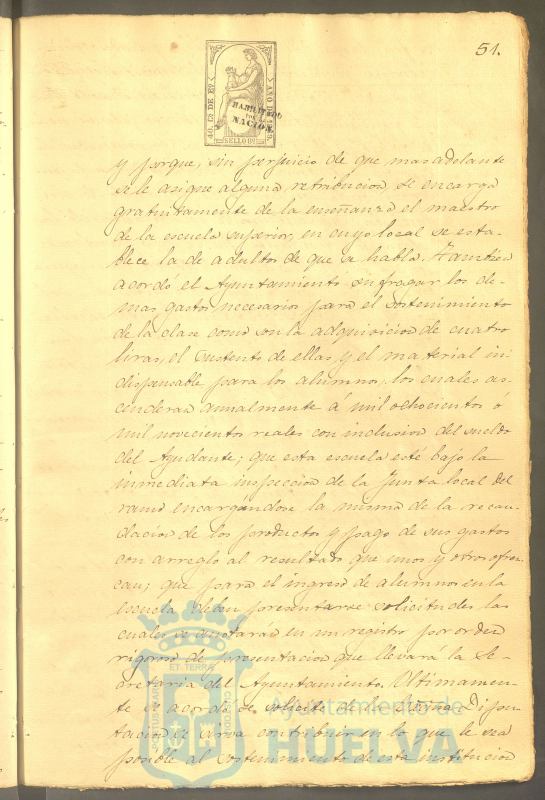 51.
40. Cs DE Eo.
AÑO DE 1869.
HABILITADO
POR LA
NACION.
SELLO 9o.
y porque, sin perjuicio de que mas adelante
se le asigne alguna retribucion, se encarga
gratuitamente de la enseñanza el maestro
de la escuela superior, en cuyo local se esta-
blece la de adultos de que se habla. Tambien
acordó el Ayuntamiento sufragar los de-
mas gastos necesarios para el sostenimiento
de la clase como son la adquisicion de cuatro
liras, el sustento de ellas y el material in-
dispensable para los alumnos, los cuales as-
cenderan anualmente á mil ochocientos ó
mil novecientos reales con inclusion del sueldo
del Ayudante; que esta escuela esté bajo la
inmediata inspeccion de la Junta local del
ramo encargandose la misma de la recau-
dacion de los productos y pago de sus gastos
con arreglo al resultado que unos y otros ofrez-
can; que para el ingreso de alumnos en la
escuela deben presentarse solicitudes las
cuales se anotarán en un registro por orden
rigoroso de presentacion que llevará la Se-
cretaria del Ayuntamiento. Ultimamen-
te se acordó se solicite de la Diputacion
se sirva contribuir en lo que le sea
posible al sostenimiento de esta institucion
PORTUS MARIS ET TERRE CUSTODIA
Ayuntamiento de
HUELVA